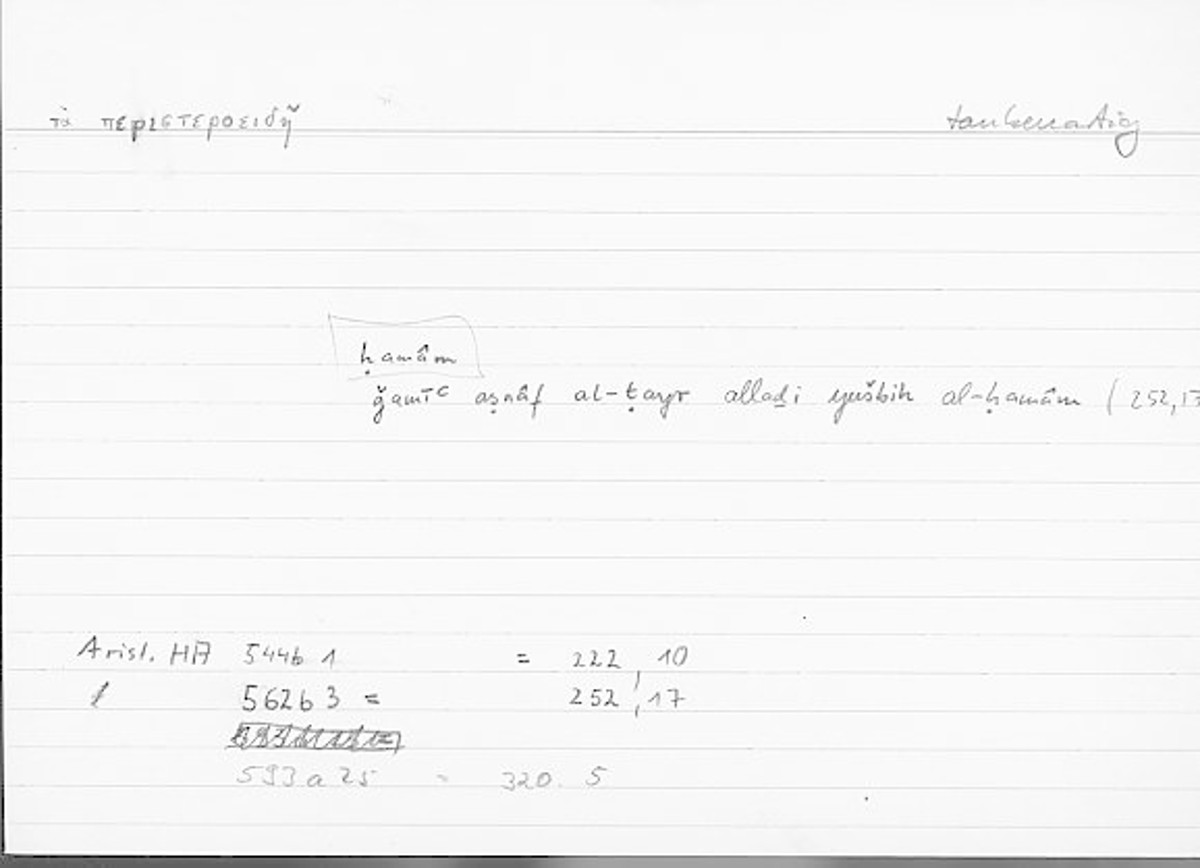 τὰ περιστεροειδῆ taubenartig
ḥamâm
ǧamīc aṣnâf al-ṭayr allaḏi yušbih al-ḥamâm (252,17
Arist. HA 544b 1 = 222, 10
562b 3 = 252, 17
593a25 = 320. 5